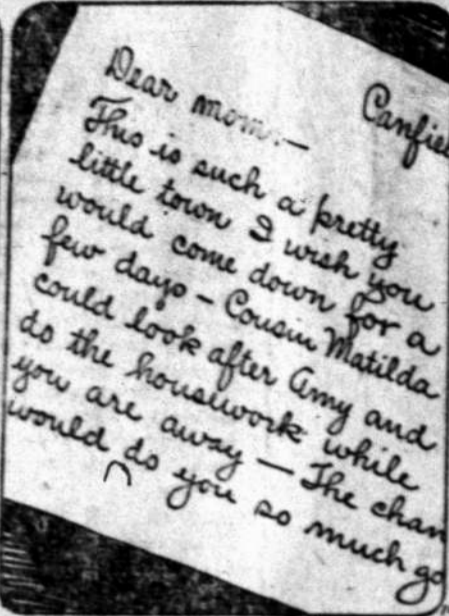 Canfie
Dear mom:—
This is such a pretty
little town I wish you
would come down for a
few days — Cousin Matilda
could look after Amy and
do the housework while
you are away — The chan
would do you so much go